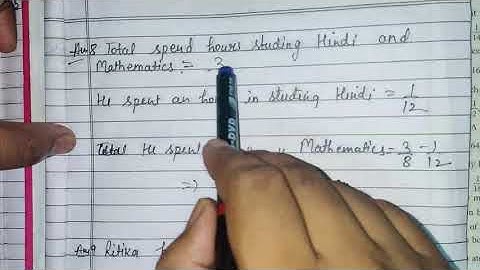 Ans 8 Total spend hours studing Hindi and
Mathematics = 3
He spent an ho in studing Hindi = 1/12
Total He spent Mathematics = 3/8 - 1/12
=)
Ans 9 Ritika